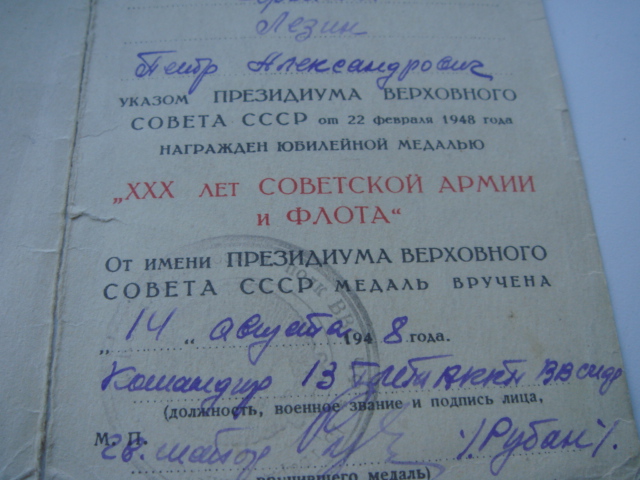 Лезин
Петр Александрович
УКАЗОМ ПРЕЗИДИУМА ВЕРХОВНОГО
СОВЕТА СССР от 22 февраля 1948 года
НАГРАЖДЕН ЮБИЛЕЙНОЙ МЕДАЛЬЮ
„XXX ЛЕТ СОВЕТСКОЙ АРМИИ
и ФЛОТА“
От имени ПРЕЗИДИУМА ВЕРХОВНОГО
СОВЕТА СССР МЕДАЛЬ ВРУЧЕНА
„14“ августа 1948 года.
Командир 13
(должность, военное звание и подпись лица,
М. П. гв. майор /Рубан/.
вручившего медаль)